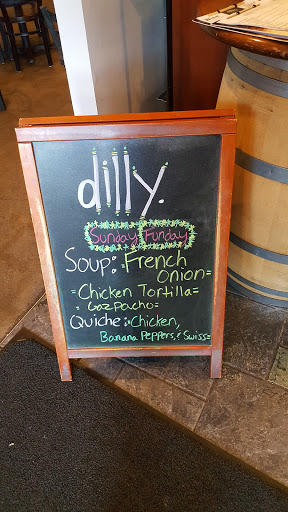 dilly.
Sunday Funday
Soup: French
Onion
Chicken Tortilla
Gazpacho
Quiche: Chicken,
Banana Peppers, & Swiss